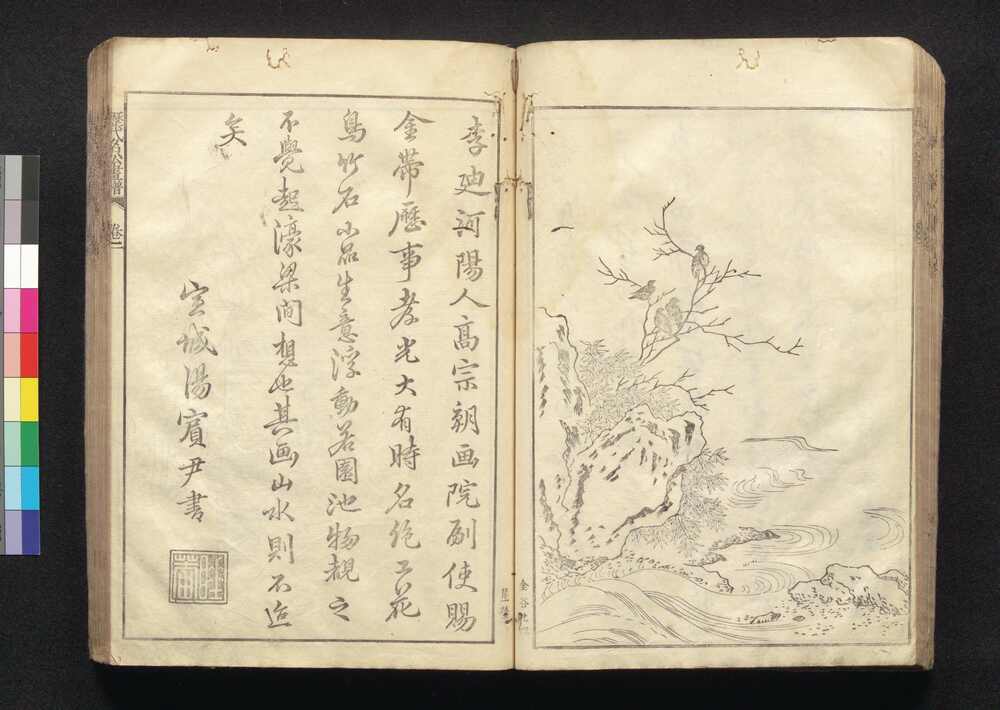 李廸河陽人高宗朝画院副使賜
金帶歷事孝光大有時名絶工花
鳥竹石小品生意浮動若園池物觀之
不覺起濠梁間想也其画山水則不迨
矣
宣城湯賓尹書
歷代名公畫譜 卷二